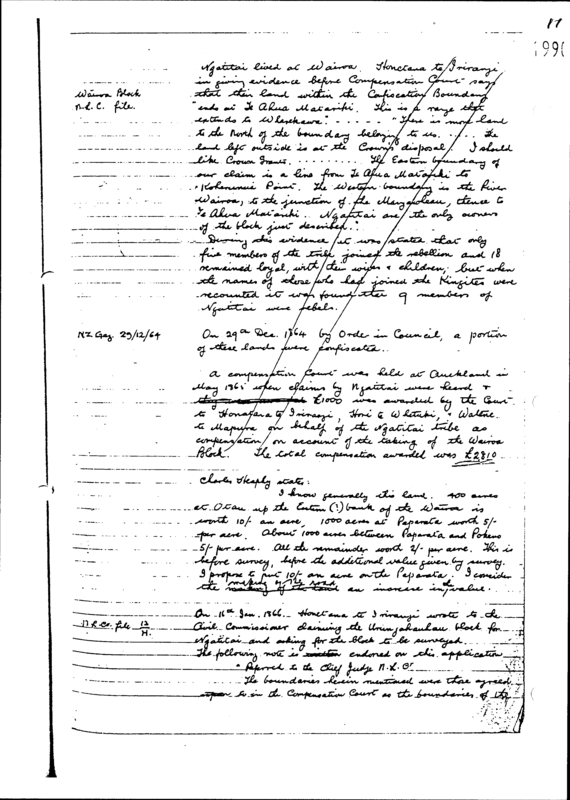 17
1990
Ngatitai lived at Wairoa. Honetana to Irirangi
in giving evidence before Compensation Court says
Wairoa Block
that their land within the Confiscation Boundary
N.L.C. file.
"ends at Te Ahua Matariki. This is a range that
extends to Wharekawa" ..... "There is more land
to the North of the boundary belonging to us. .... The
land left outside is at the Crown's disposal. I should
like Crown Grants. ......... The Eastern boundary of
our claim is a line from Te Ahua Matariki to
Point. The Western boundary is the River
Wairoa, to the junction of the thence to
Te Ahua Matariki. Ngatitai are the only owners
of the block just described."
During this evidence it was stated that only
five members of the tribe joined the rebellion and 18
remained loyal, with their wives & children, but when
the names of those who had joined the Kingites were
recounted it was found that 9 members of
Ngatitai were rebels.
NZ Gaz 29/12/64
On 29th Dec. 1864 by Order in Council, a portion
of these lands were confiscated.
A Compensation Court was held at Auckland in
May 1865 when claims by Ngatitai were heard &
£1000 was awarded by the Court
to Irirangi, Hori Te Whetuki, &
to on behalf of the Ngatitai tribe as
compensation on account of the taking of the Wairoa
Block. The total compensation awarded was £2810
Charles Heaphy states:
I know generally this land. 400 acres
at Otau up the Eastern (?) bank of the Wairoa is
worth 10/- an acre, 1000 acres at Paparata worth 5/-
per acre. About 1000 acres between Paparata and Pokeno
5/- per acre. All the remainder worth 2/- per acre. This is
before survey, before the additional value given by survey.
I propose to put 10/- an acre on the Paparata. I consider
the making of the road an increase in value.
On 16th Jan. 1866. Honetana to Irirangi wrote to the
N.L.C. file 12/H.
Civil Commissioner claiming the Urungahauhau block for
Ngatitai and asking for the block to be surveyed.
The following note is endorsed on this application
"Referred to the Chief Judge N.L.C.
The boundaries herein mentioned were those agreed
to in the Compensation Court as the boundaries of the